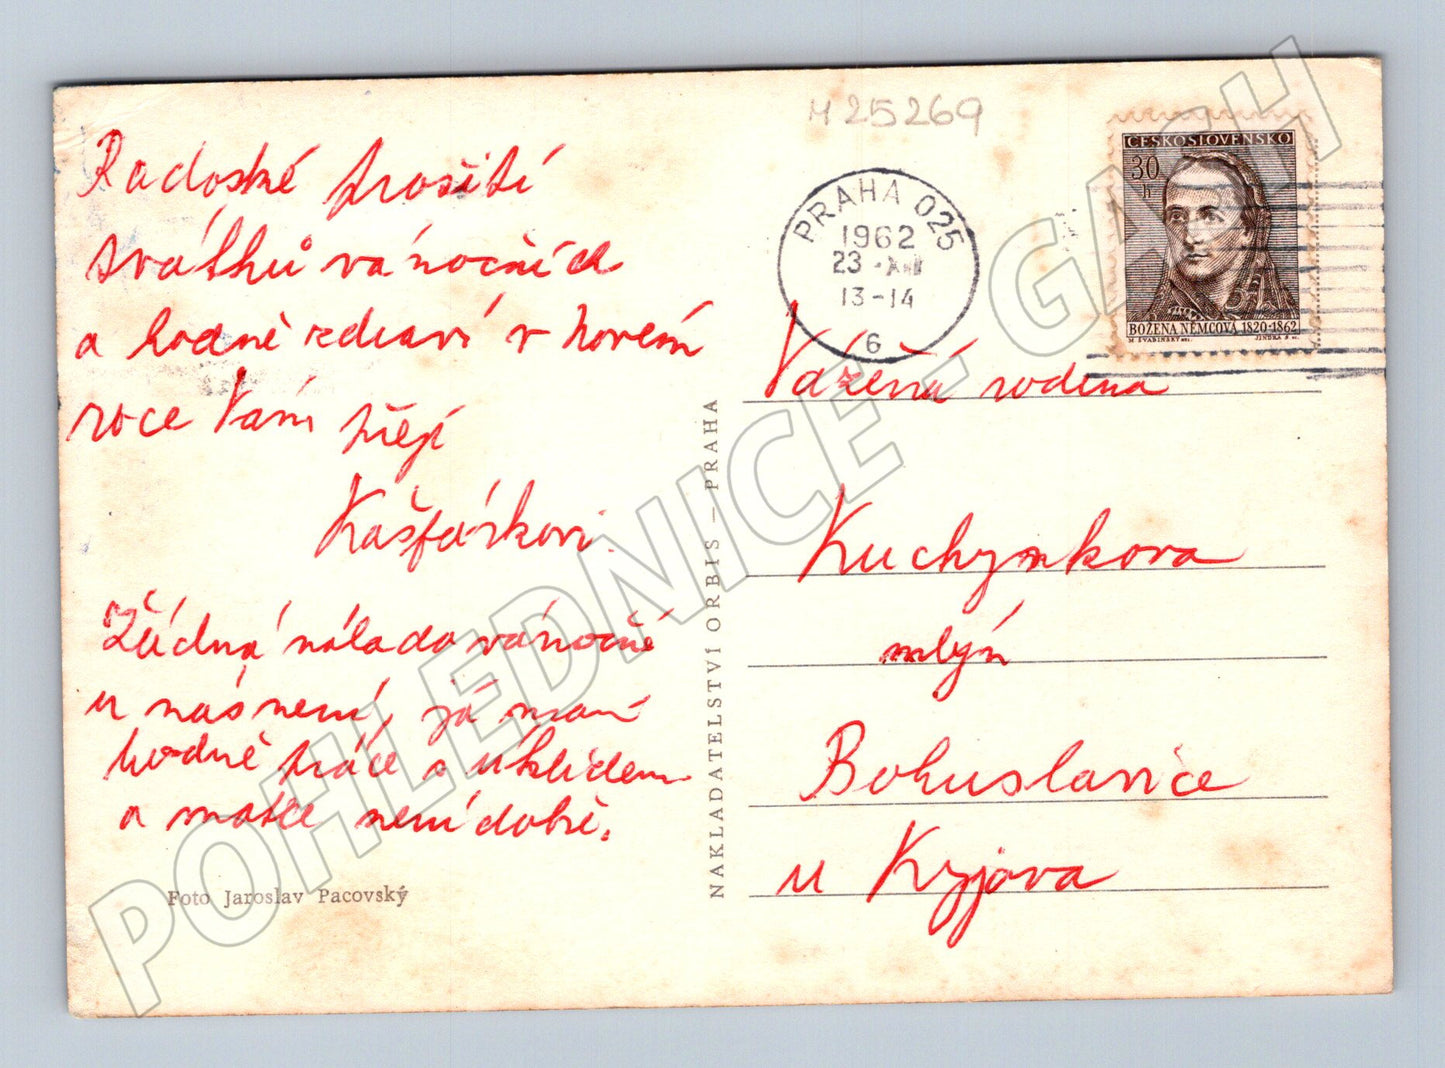 M 25269
Radostné prožití
svátků vánočních
a hodně zdraví v novém
roce Vám přejí
Kašpárkovi.
Žádná nálada vánoční
u nás není, já mám
hodně práce s úklidem
a matce není dobře.
Foto Jaroslav Pacovský
NAKLADATELSTVÍ ORBIS – PRAHA
PRAHA 025
1962
23 ·XII
13-14
6
ČESKOSLOVENSKO
30
h
BOŽENA NĚMCOVÁ 1820-1862
M. ŠVABINSKÝ DEL.
JINDRA S. SC.
Vážená rodina
Kuchynkova
mlýn
Bohuslavice
u Kyjova
POHLEDNICE - GASH